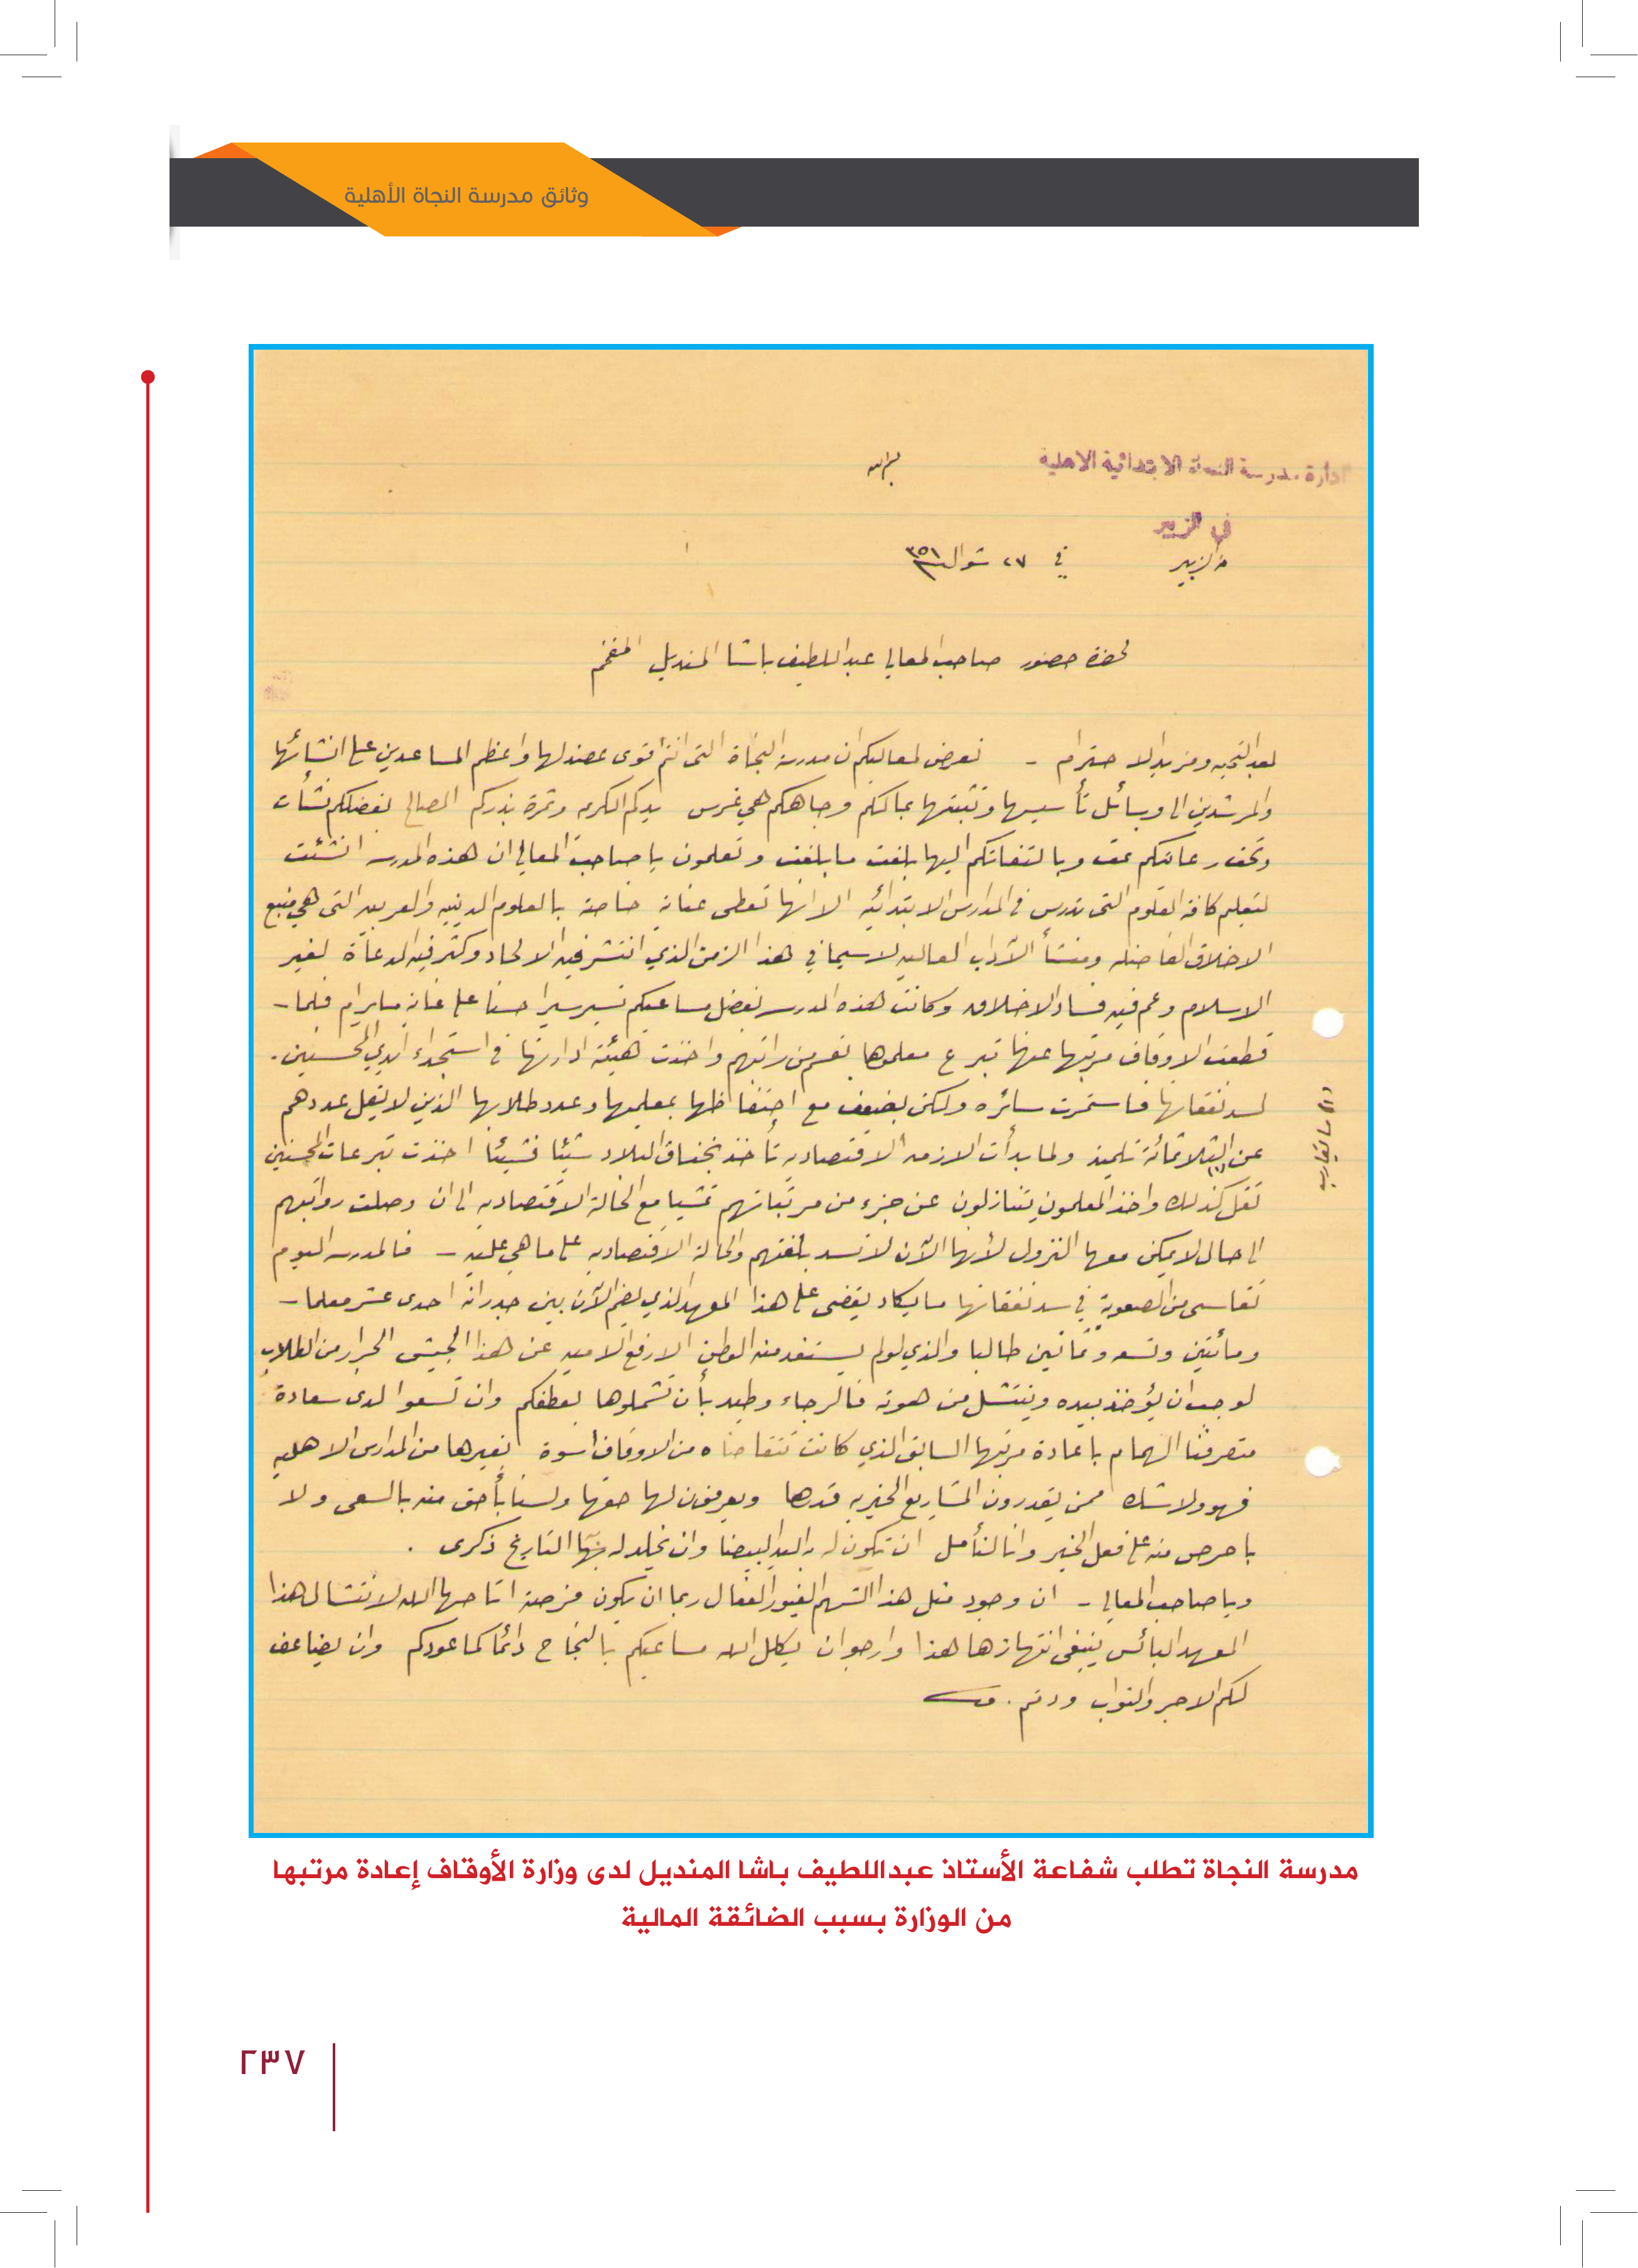 وثائق مدرسة النجاة الأهلية
ادارة مدرسة النجاة الابتدائية الاهلية
بسم الله
في الزبير
الزبير في ٢٧ شوال ٣٥١
لحضرة حضور صاحب المعالي عبد اللطيف باشا المنديل المفخم
بعد التحيه ومزيد الاحترام - نعرض لمعاليكم ان مدرسة النجاة التى انتم اقوى عضد لها واعظم المساعدين على انشائها
والمرشدين الى وسائل تأسيسها وتثبيتها بمالكم وجاهكم هي غرس يدكم الكريمه وثمرة بذركم الصالح بفضلكم نشأت
وتحت رعايتكم نمت وبالتفاتكم اليها بلغت ما بلغت وتعلمون يا صاحب المعالي ان هذه المدرسه انشئت
لتعليم كافة العلوم التى تدرس في المدارس الابتدائيه الا انها تعطى عناية خاصة بالعلوم الدينيه والعربيه التى هي منبع
الاخلاق الفاضله ومنشأ الآداب العاليه لاسيما في هذا الزمن الذي انتشر فيه الالحاد وكثر فيه الدعاة لغير
الاسلام وعم فيه فساد الاخلاق وكانت هذه المدرسه بفضل مساعيكم تسير سيرا حسنا على غاية ما يرام فلما -
قطعت الاوقاف مرتبها عنها تبرع معلموها بقسم من راتبهم واخذت هيئة ادارتها في استجداء ايدي المحسنين .
لسد نفقاتها فاستمرت سائره ولكن بضعف مع احتفاظها بمعلميها وعدد طلابها الذين لا يقل عددهم
عن الثلاثمائة تلميذ ولما بدأت الازمه الاقتصاديه تأخذ بخناق البلاد شيئا فشيئا اخذت تبرعات المحسنين
(١) ما يقارب
تقل كذلك واخذ المعلمون يتنازلون عن جزء من مرتباتهم تمشيا مع الحالة الاقتصاديه الى ان وصلت رواتبهم
الى حال لا يمكن معها النزول لأنها الآن لا تسد بلغتهم والحالة الاقتصاديه على ما هي عليه - فالمدرسه اليوم
تقاسى من الصعوبة في سد نفقاتها ما يكاد يقضى على هذا المعهد الذي يضم الآن بين جدرانه احدى عشر معلما -
ومائتين وتسعه وثمانين طالبا والذي لو لم يستفد منه الوطن الا رفع الاميه عن هذا الجيش الجرار من الطلاب
لوجب ان يؤخذ بيده وينتشل من هوته فالرجاء وطيد بأن تشملوها بعطفكم وان تسعوا لدى سعادة
متصرفنا الهمام باعادة مرتبها السابق الذي كانت تتقاضاه من الاوقاف اسوة بغيرها من المدارس الاهليه
فهو ولا شك ممن يقدرون المشاريع الخيريه قدرها ويعرفون لها حقها ولسنا بأحق منه بالسعى ولا
باحرص منه على فعل الخير وانا لنأمل ان تكون له اليد البيضا وان يخلد له بها التاريخ ذكرى .
ويا صاحب المعالي - ان وجود مثل هذا الشهم الغيور الفعال ربما ان يكون فرصة اتاحها الله لانتشال هذا
المعهد البائس ينبغى انتهازها هذا وارجو ان يكلل الله مساعيكم بالنجاح دائما كما عودكم وان يضاعف
لكم الاجر والثواب ودمتم .
مدرسة النجاة تطلب شفاعة الأستاذ عبداللطيف باشا المنديل لدى وزارة الأوقاف إعادة مرتبها
من الوزارة بسبب الضائقة المالية
٢٣٧